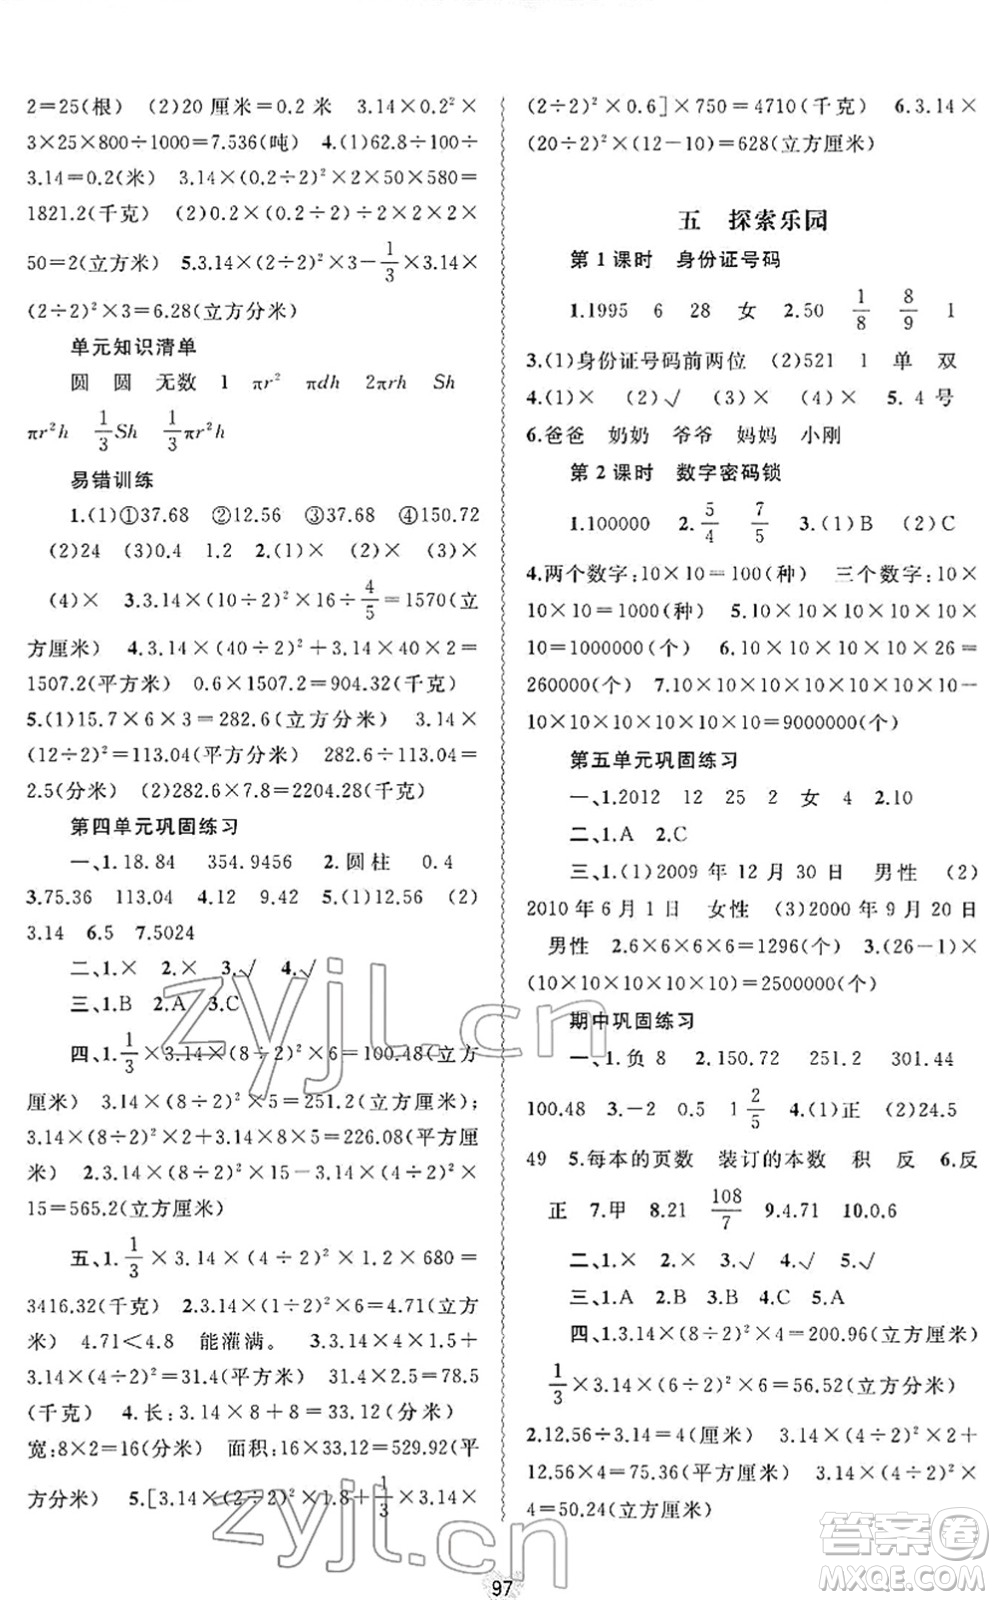 2=25(根) (2)20 厘米=0.2 米 3.14×0.2²×
3×25×800÷1000=7.536(吨) 4.(1)62.8÷100÷
3.14=0.2(米) 3.14×(0.2÷2)²×2×50×580=
1821.2(千克) (2)0.2×(0.2÷2)×2×2×
50=2(立方米) 5.3.14×(2÷2)²×3−1/3×3.14×
(2÷2)²×3=6.28(立方分米)
单元知识清单
圆 圆 无数 1 πr² πdh 2πrh Sh
πr²h 1/3Sh 1/3πr²h
易错训练
1.(1)①37.68 ②12.56 ③37.68 ④150.72
(2)24 (3)0.4 1.2 2.(1)× (2)× (3)×
(4)× 3.3.14×(10÷2)²×16÷4/5=1570(立
方厘米) 4.3.14×(40÷2)²+3.14×40×2=
1507.2(平方米) 0.6×1507.2=904.32(千克)
5.(1)15.7×6×3=282.6(立方分米) 3.14×
(12÷2)²=113.04(平方分米) 282.6÷113.04=
2.5(分米) (2)282.6×7.8=2204.28(千克)
第四单元巩固练习
一、1.18.84 354.9456 2.圆柱 0.4
3.75.36 113.04 4.12 9.42 5.(1)12.56 (2)
3.14 6.5 7.5024
二、1.× 2.× 3.√ 4.√
三、1.B 2.A 3.C
四、1.1/3×3.14×(8÷2)²×6=100.48(立方
厘米) 3.14×(8÷2)²×5=251.2(立方厘米);
3.14×(8÷2)²×2+3.14×8×5=226.08(平方厘
米) 2.3.14×(8÷2)²×15−3.14×(4÷2)²×
15=565.2(立方厘米)
五、1.1/3×3.14×(4÷2)²×1.2×680=
3416.32(千克) 2.3.14×(1÷2)²×6=4.71(立方
米) 4.71<4.8 能灌满。 3.3.14×4×1.5+
3.14×(4÷2)²=31.4(平方米) 31.4×2.5=78.5
(千克) 4.长:3.14×8+8=33.12(分米)
宽:8×2=16(分米) 面积:16×33.12=529.92(平
方分米) 5.[3.14×(2÷2)²×1.8+1/3×3.14×
(2÷2)²×0.6]×750=4710(千克) 6.3.14×
(20÷2)²×(12−10)=628(立方厘米)
五 探索乐园
第1课时 身份证号码
1.1995 6 28 女 2.50 1/8 8/9 1
3.(1)身份证号码前两位 (2)521 1 单 双
4.(1)× (2)√ (3)× (4)× 5.4号
6.爸爸 奶奶 爷爷 妈妈 小刚
第2课时 数字密码锁
1.100000 2.5/4 7/5 3.(1)B (2)C
4.两个数字:10×10=100(种) 三个数字:10×
10×10=1000(种) 5.10×10×10×10×10×
10=1000000(个) 6.10×10×10×10×26=
260000(个) 7.10×10×10×10×10×10×10−
10×10×10×10×10×10=9000000(个)
第五单元巩固练习
一、1.2012 12 25 2 女 4 2.10
二、1.A 2.C
三、1.(1)2009 年 12 月 30 日 男性 (2)
2010 年 6 月 1 日 女性 (3)2000 年 9 月 20 日
男性 2.6×6×6×6=1296(个) 3.(26−1)×
(10×10×10×10×10)=2500000(个)
期中巩固练习
一、1.负 8 2.150.72 251.2 301.44
100.48 3.−2 0.5 1 2/5 4.(1)正 (2)24.5
49 5.每本的页数 装订的本数 积 反 6.反
正 7.甲 8.21 108/7 9.4.71 10.0.6
二、1.× 2.× 3.√ 4.√ 5.√
三、1.A 2.B 3.B 4.C 5.A
四、1.3.14×(8÷2)²×4=200.96(立方厘米)
1/3×3.14×(6÷2)²×6=56.52(立方分米)
2.12.56÷3.14=4(厘米) 3.14×(4÷2)²×2+
12.56×4=75.36(平方厘米) 3.14×(4÷2)²×
4=50.24(立方厘米)
97
zyjl.cn
zyjl.cn
答案卷
MXQE.COM